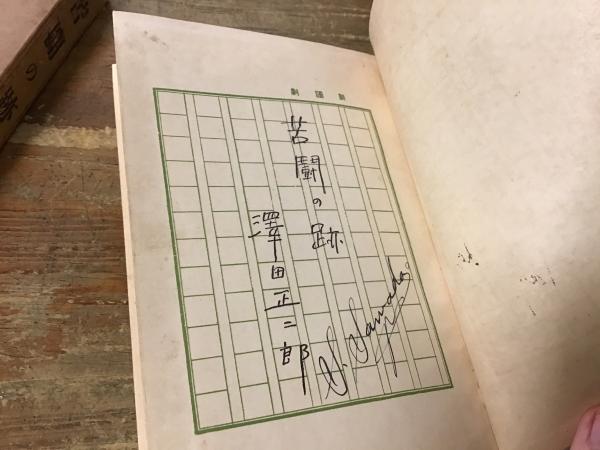 新國劇
苦鬪の跡
澤田正二郎
S. Sawada
の跡